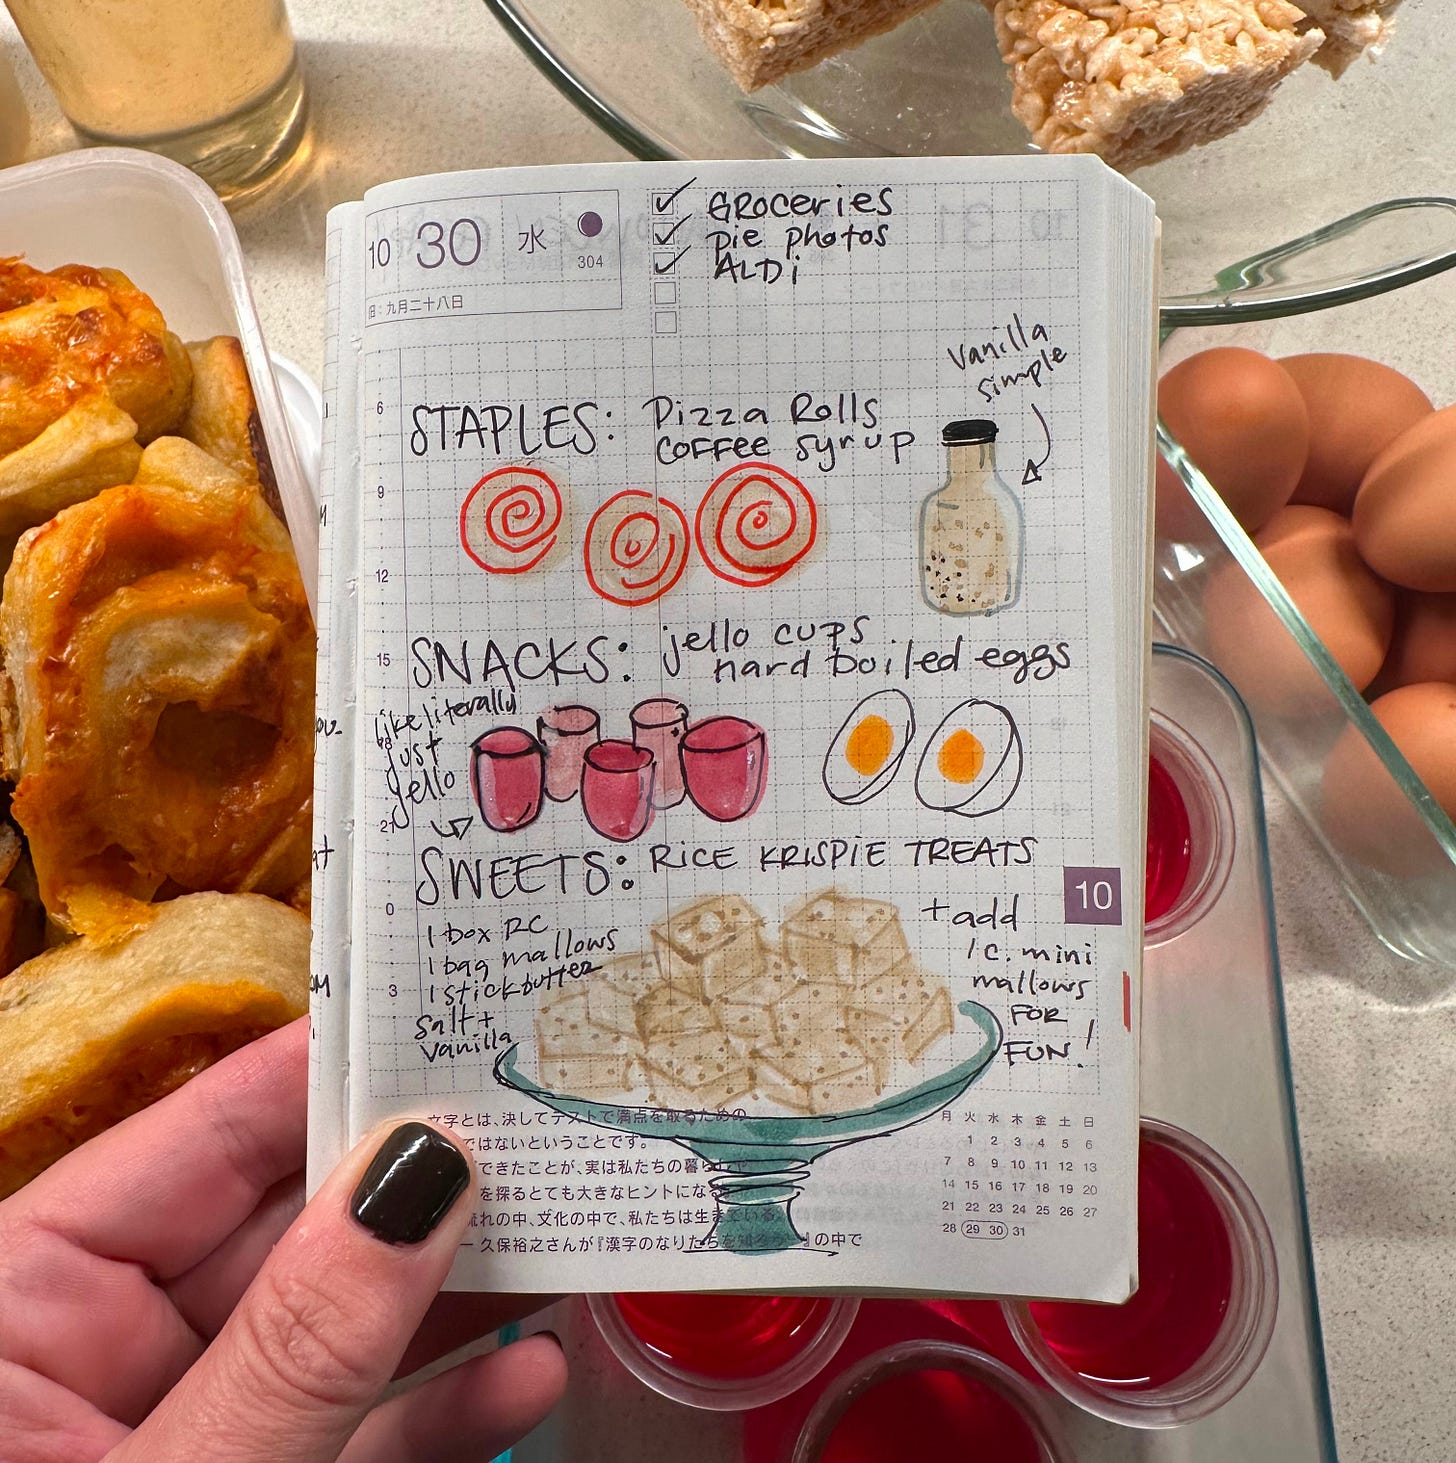 10 30 水
304
旧:九月二十八日
GROCERIES
pie photos
ALDi
vanilla
simple
STAPLES: Pizza Rolls
COFFEE syrup
6
9
12
15
SNACKS: jello cups
hard boiled eggs
like literally
just
jello
21
SWEETS: RICE KRISPIE TREATS
10
0
1 box RC
1 bag mallows
1 stick butter
3
salt +
vanilla
+ add
1 c. mini
mallows
FOR
FUN!
文字とは、決してテストで満点を取るための
ではないということです。
できたことが、実は私たちの暮らしや
を探るとても大きなヒントになる
流れの中、文化の中で、私たちは生きている
— 久保裕之さんが『漢字のなりたちを知ろう。』の中で
月 火 水 木 金 土 日
1 2 3 4 5 6
7 8 9 10 11 12 13
14 15 16 17 18 19 20
21 22 23 24 25 26 27
28 29 30 31